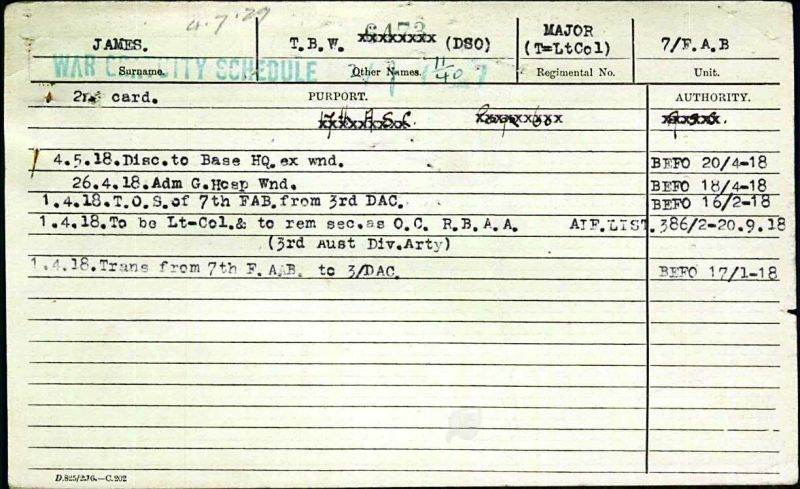 4.7.'27
JAMES. T.B.W. xxxxxxxx (DSO) MAJOR (T=LtCol) 7/F.A.B
WAR GRATUITY SCHEDULE
Surname. Other Names. Regimental No. Unit.
2nd card. PURPORT. AUTHORITY.
4.5.18.Disc.to Base HQ.ex wnd. BEFO 20/4-18
26.4.18.Adm G.Hosp Wnd. BEFO 18/4-18
1.4.18.T.O.S.of 7th FAB.from 3rd DAC. BEFO 16/2-18
1.4.18.To be Lt-Col.& to rem sec.as O.C. R.B.A.A. AIF.LIST.386/2-20.9.18
(3rd Aust Div.Arty)
1.4.18.Trans from 7th F.A.B. to 3/DAC. BEFO 17/1-18
D.825/2.16.—C.202